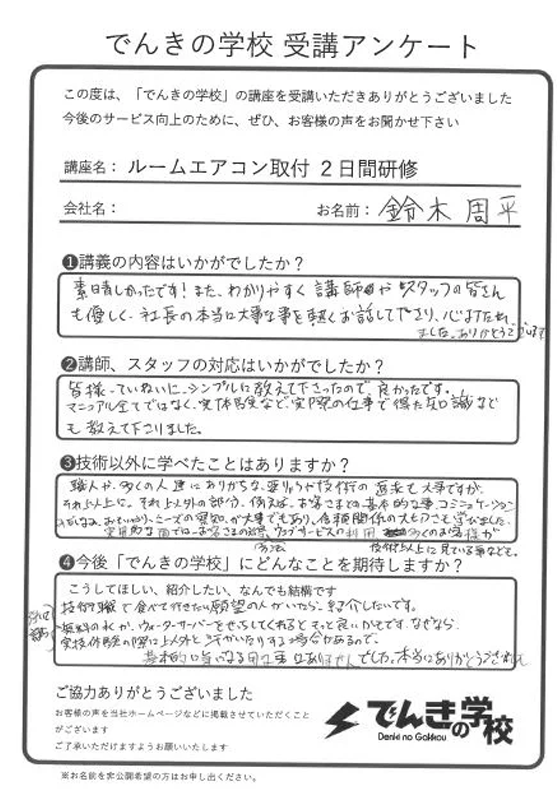 でんきの学校 受講アンケート
この度は、「でんきの学校」の講座を受講いただきありがとうございました
今後のサービス向上のために、ぜひ、お客様の声をお聞かせ下さい
講座名： ルームエアコン取付 ２日間研修
会社名： お名前： 鈴木 周平
❶講義の内容はいかがでしたか？
素晴しかったです！また、わかりやすく 講師や スタッフの皆さん
も優しく、社長の本当に大事な事を熱くお話して下さり、心打たれ
ました。ありがとうございます
❷講師、スタッフの対応はいかがでしたか？
皆様、ていねいに、シンプルに教えて下さったので、良かったです。
マニュアル全てではなく、実体験など、実際の仕事で得た知識など
も 教えて下さりました。
❸技術以外に学べたことはありますか？
職人や、多くの人達にありがちな、
技術の 追求も大事ですが、
それ以上に、それ以外の部分、例えば、お客さまとの基本的な事、コミュニケーション
おもいやり、ニーズの察知、が大事でもあり、信頼関係の大切さこと学びました。
実用的な面では、お客さまの
ウェブサービスの利用 多くのお客様が
方法
技術以上に見ている事なども。
❹今後「でんきの学校」にどんなことを期待しますか？
こうしてほしい、紹介したい、なんでも結構です
技術職で食べて行きたい願望の人がいたら、紹介したいです。
無料の水か、ウォーターサーバーをせっちしてくれるともっと良いかもです。なぜなら、
実技体験の際に以外と汗かいたりする場合があるので、
基本的に気になる
ありませんでした。本当にありがとうございました
ご協力ありがとうございました
お客様の声を当社ホームページなどに掲載させていただくこと
がございます
ご了承いただけますようお願いいたします
でんきの学校
Denki no Gakkou
※お名前を非公開希望の方はお申し出ください。